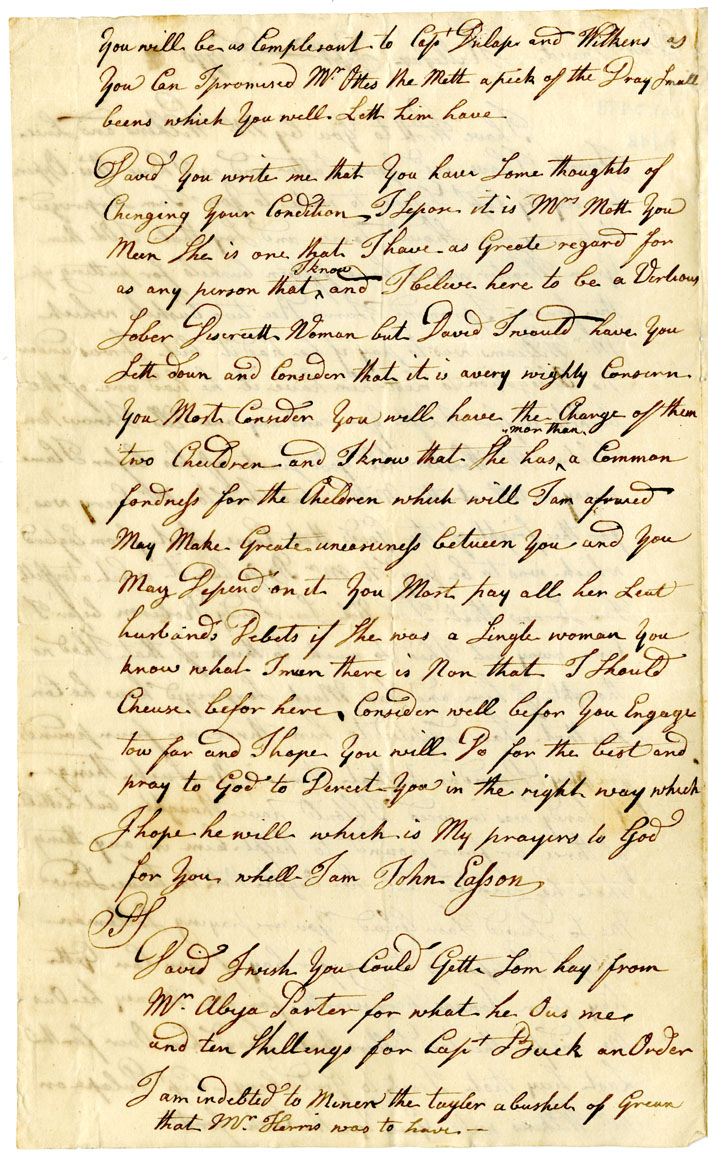 You will be as Complesant to Capt Dulap and Wilkens as
You Can I promised Mr Ottes the Mett a pick of the Dray Small
beens which You will Lett him have
David You write me that You have Some thoughts of
Chenging Your Condition I Sepose it is Mrs Mott You
Meen She is one that I have as Greate regard for
as any person that I know and I beleve here to be a Vertious
Sober Discreett Woman but David I would have You
Sett doun and Consider that it is a very wighty Consern
You Most Consider You will have the Charge of them
two Cheildren and I know that She has mor than a Common
fondness for the Children which will I am afraied
May Make Greate uneasiness between You and You
May Depend on it You Most pay all her Leat
husbands Debets if She was a Single woman You
know what I men there is Non that I Should
Cheuse befor here Consider well befor You Engage
tow far and I hope You will Do for the best and
pray to God to Derect You in the right way which
I hope he will which is My prayers to God
for You whell I am John Easson
PS
David I wish You Could Gett Som hay from
Mr Abija Parter for what he Ous me
and ten Shillings for Capt Buck an Order
I am indebted to Miner the tayler a bushel of Grean
that Mr Herris was to have